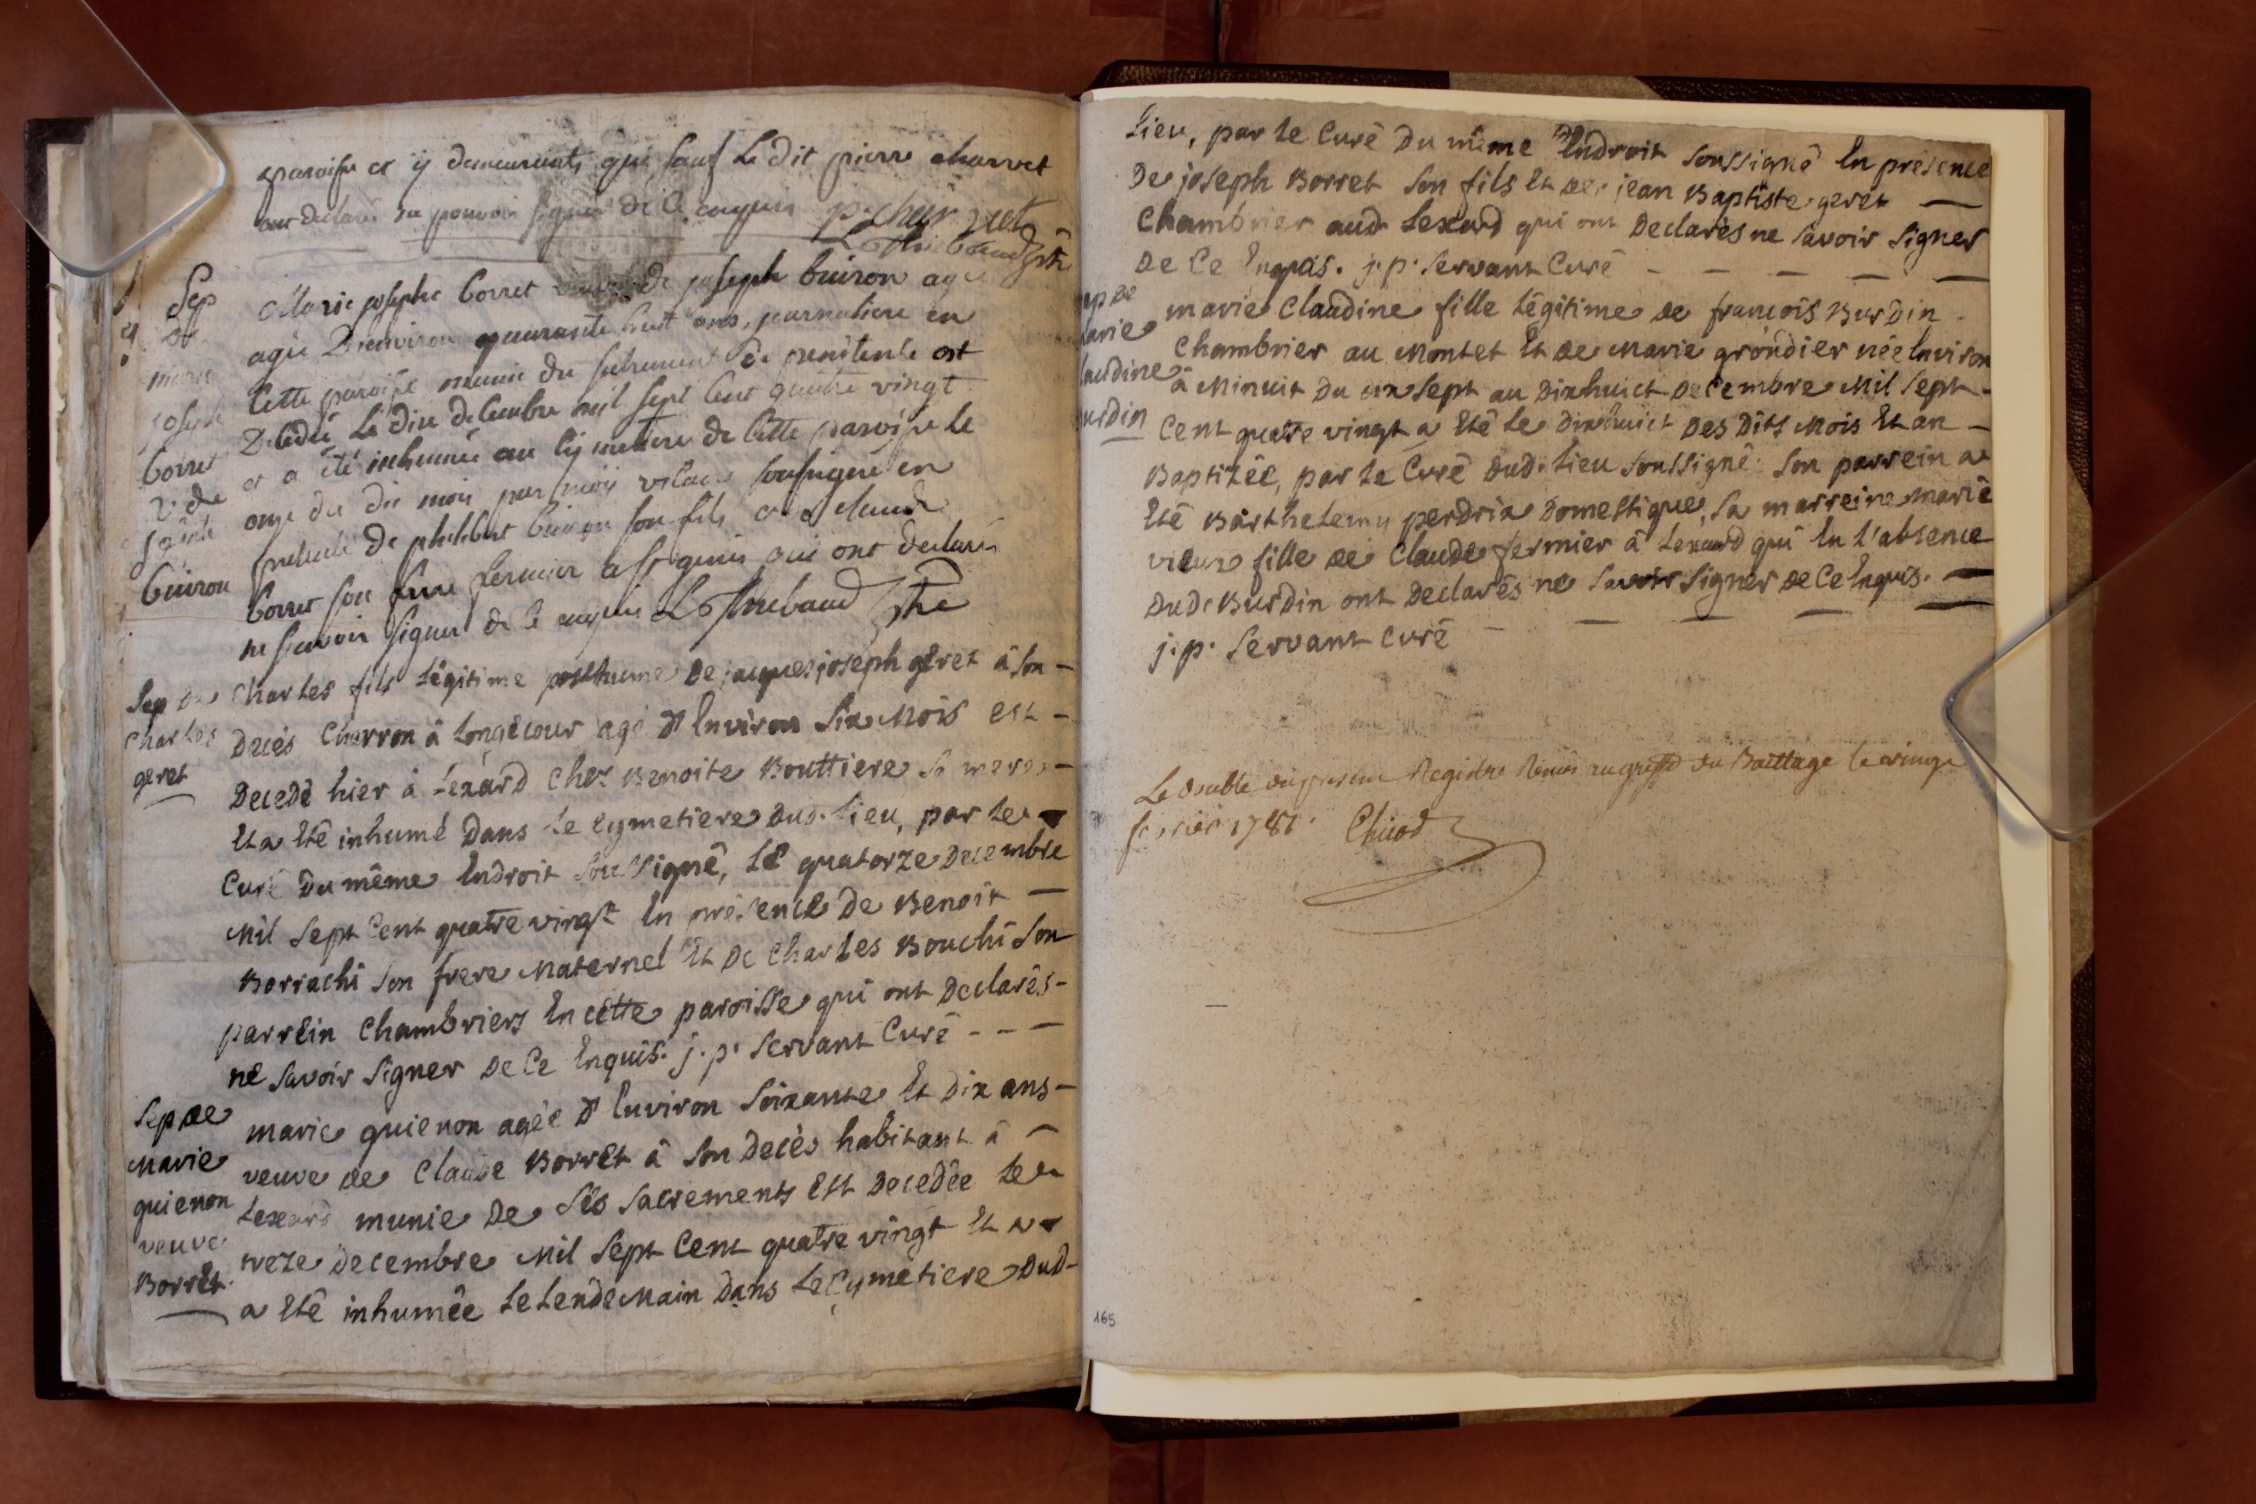 paroisse et ÿ demeurants qui, sauf Le dit pierre charvet
ont declarés ne pouvoir signer de Ce enquis p. charvet
L Thiebaud ptre
Sep
de
marie
joseph
borret
v. de
joseph
buiron
Marie josephe borret veuve de joseph buiron agé
agée D'environ quarante huit ans, journaliere en
Cette paroisse munie du sacrement de penitente est
Decedée Le dix decembre mil sept Cent quatre vingt
et a été inhumée au Cymetiere de Cette paroisse le
onze du dit mois par moy vicaire soussigné en
presence de philibert buiron son fils et de claude
borret son frere fermier a qui ont declarés
ne sçavoir signer de Ce enquis L Thiebaud ptre
Sep de
Charles
geret
Charles fils Légitime posthume de jacques joseph geret â son -
Decés Charron â Longecour agé D'Environ Six Mois est -
Decedé hier â Lexard Chez Benoite Bouttiere Sa mere -
Et a Eté inhumé Dans Le Cymetiere dud. Lieu, par Le
Curé Du même Endroit Soussigné, Le quatorze Decembre
Mil Sept Cent quatre vingt En présence De Benoit -
Borrachi Son frere Maternel Et De Charles Bouchi Son
parrein Chambriers En Cette paroisse qui ont Declarés -
ne Savoir Signer De Ce Enquis. j. p. Servant Curé - - -
Sep de
Marie
quienon
veuve
Borret
marie quienon agée D'Environ Soixante Et Dix ans -
veuve de Claude Borret â Son Decès habitant â -
Lexard munie De Ses Sacrements Est Decedée Le
treze Decembre Mil Sept Cent quatre vingt Et a
a Eté inhumée Le Lendemain Dans Le Cymetiere Dud-
Lieu, par Le Curé Du même Endroit Soussigné En présence
De joseph Borret Son fils Et de jean Baptiste geret -
Chambrier aud. Lexard qui ont Declarés ne Savoir Signer
De Ce Enquis. j. p. Servant Curé - - - - -
ap de
arie
laudine
urdin
marie Claudine fille Légitime de françois Burdin -
Chambrier au Montet Et de Marie grondier née Environ
â Minuit Du dix Sept au Dixhuict Decembre Mil Sept -
Cent quatre vingt a Eté Le Dixhuict Des Dits Mois Et an -
Baptizée, par Le Curé dud. Lieu Soussigné. Son parrein a
Eté Barthelemy perdrix Domestique, Sa marreine marie
vieux fille de Claude fermier â Lexard qui En l'absence
Dud. Burdin ont Declarés ne Savoir Signer de Ce Enquis. -
j. p. Servant Curé - - - - -
Le double du present Registre Remis au greffe du Bailliage le vingt
fevrier 1781. Chicod
165